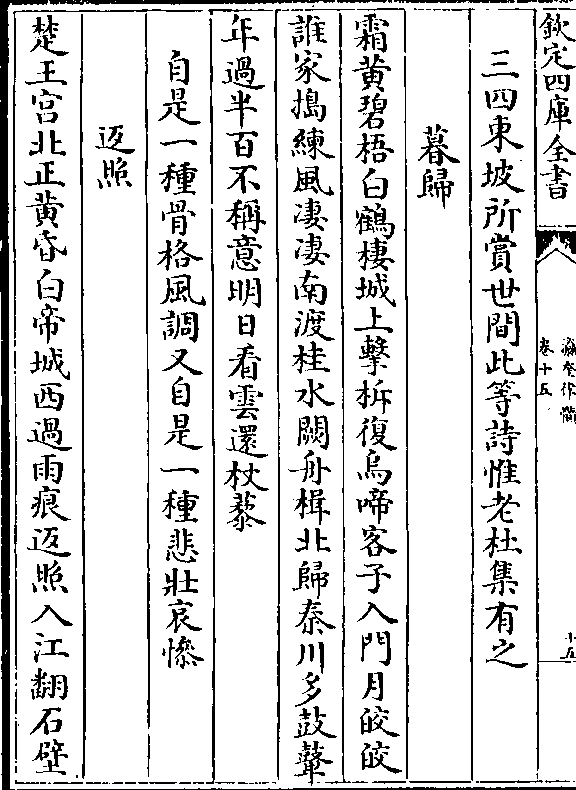 欽定四庫全書
瀛奎律髓
卷十五
十五
三四東坡所賞世間此等詩惟老杜集有之
暮歸
霜黃碧梧白鶴棲城上擊柝復烏啼客子入門月皎皎
誰家搗練風淒淒南渡桂水闕舟楫北歸秦川多鼓鼙
年過半百不稱意明日看雲還杖藜
自是一種骨格風調又自是一種悲壯哀慘
返照
楚王宮北正黃昏白帝城西過雨痕返照入江翻石壁